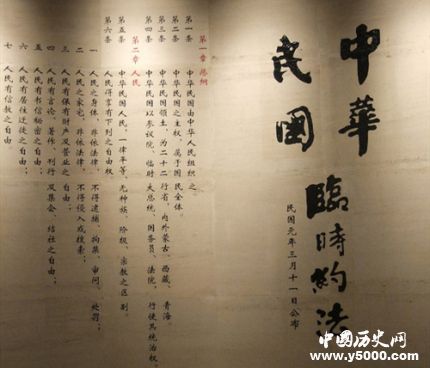 中華
民國
臨時約法
民国元年三月十一日公布
第一章 总纲
第一条 中华民国由中华人民组织之。
第二条 中华民国之主权,属于国民全体。
第三条 中华民国领土,为二十二行省,内外蒙古、西藏、青海。
第四条 中华民国以参议院、临时大总统、国务员、法院,行使其统治权。
第二章 人民
第五条 中华民国人民,一律平等,无种族、阶级、宗教之区别。
第六条 人民得享有下列之自由权
一 人民之身体,非依法律,不得逮捕、拘禁、审问、处罚;
二 人民之家宅,非依法律,不得侵入或搜索;
三 人民有保有财产及营业之自由;
四 人民有言论、著作、刊行及集会、结社之自由;
五 人民有书信秘密之自由;
六 人民有居住迁徙之自由;
七 人民有信教之自由
中國历史网
www.y5000.com